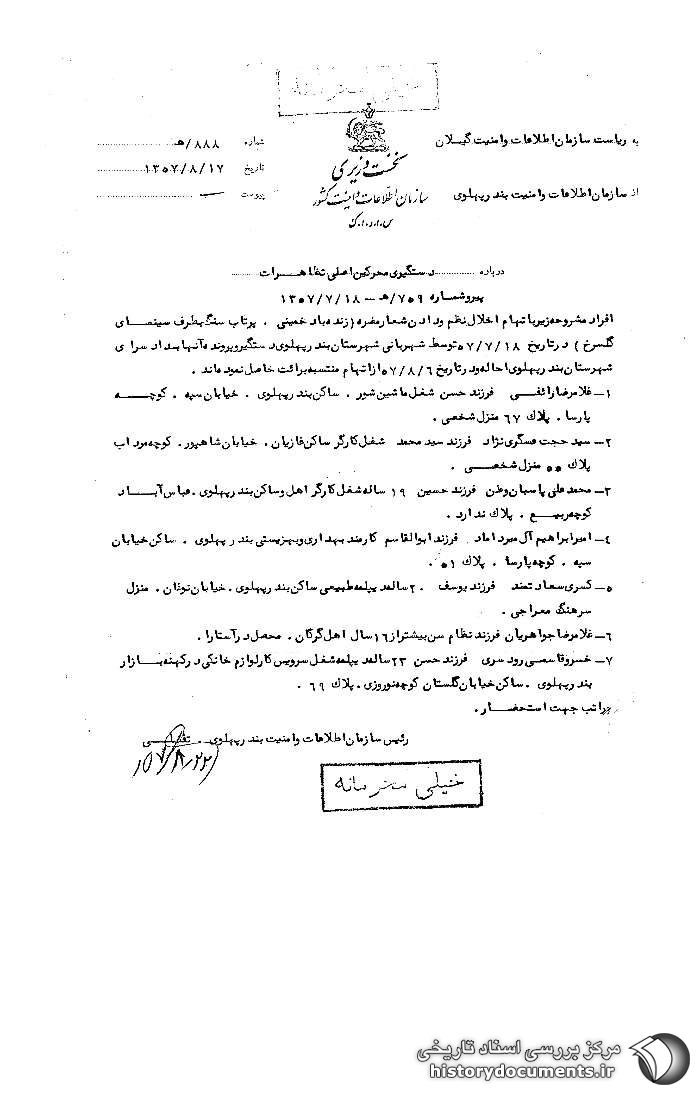 خیلی محرمانه
به ریاست سازمان اطلاعات و امنیت گیلان
شماره ۸۸۸/هـ
نخست وزیری
تاریخ ۱۳۵۷/۸/۱۷
از سازمان اطلاعات و امنیت بندرپهلوی
سازمان اطلاعات و امنیت کشور
پیوست
س.ا.و.ا.ک
درباره دستگیری محرکین اصلی تظاهرات
پیرو شماره ۷۵۹/هـ - ۱۳۵۷/۷/۱۸
افراد مشروحه زیر با تهام اخلال نظم و دادن شعار مضره (زنده باد خمینی . پرتاب سنگ بطرف سینمای
گلسرخ) در تاریخ ۵۷/۷/۱۸ توسط شهربانی شهرستان بندرپهلوی دستگیر و پرونده آنها بدادسرای
شهرستان بندرپهلوی احاله و در تاریخ ۵۷/۸/۶ از اتهام منتسبه برائت حاصل نموده اند .
۱- غلامرضا رائفی فرزند حسن شغل ماشین شور . ساکن بندرپهلوی . خیابان سپه . کوچه
پارسا . پلاک ۶۷ منزل شخصی .
۲- سید حجت عسگری نژاد فرزند سید محمد شغل کارگر ساکن غازیان . خیابان شاهپور . کوچه مرداب
پلاک ۵۵ منزل شخصی .
۳- محمدعلی پاسبان وطن فرزند حسین ۱۹ ساله شغل کارگر اهل و ساکن بندرپهلوی . عباس آباد
کوچه ربیع . پلاک ندارد .
۴- امیرابراهیم آل میرداماد . فرزند ابوالقاسم کارمند بهداری و بهزیستی بندرپهلوی . ساکن خیابان
سپه . کوچه پارسا . پلاک ۵۱ .
۵- کسری سعادتمند فرزند یوسف ۲۰ ساله دیپلمه طبیعی ساکن بندرپهلوی . خیابان توتان . منزل
سرهنگ معراجی .
۶- غلامرضا جواهریان فرزند نظام سن بیشتر از ۱۶ سال اهل گرگان . محصل در آستارا .
۷- خسرو قاسمی رودسری فرزند حسن ۲۳ ساله دیپلمه شغل سرویس کار لوازم خانگی در کهنه بازار
بندرپهلوی . ساکن خیابان گلستان کوچه نوروزی . پلاک ۶۹ .
مراتب جهت استحضار .
رئیس سازمان اطلاعات و امنیت بندرپهلوی .
۵۷/۸/۲۲
خیلی محرمانه
مرکز بررسی اسناد تاریخی
historydocuments.ir